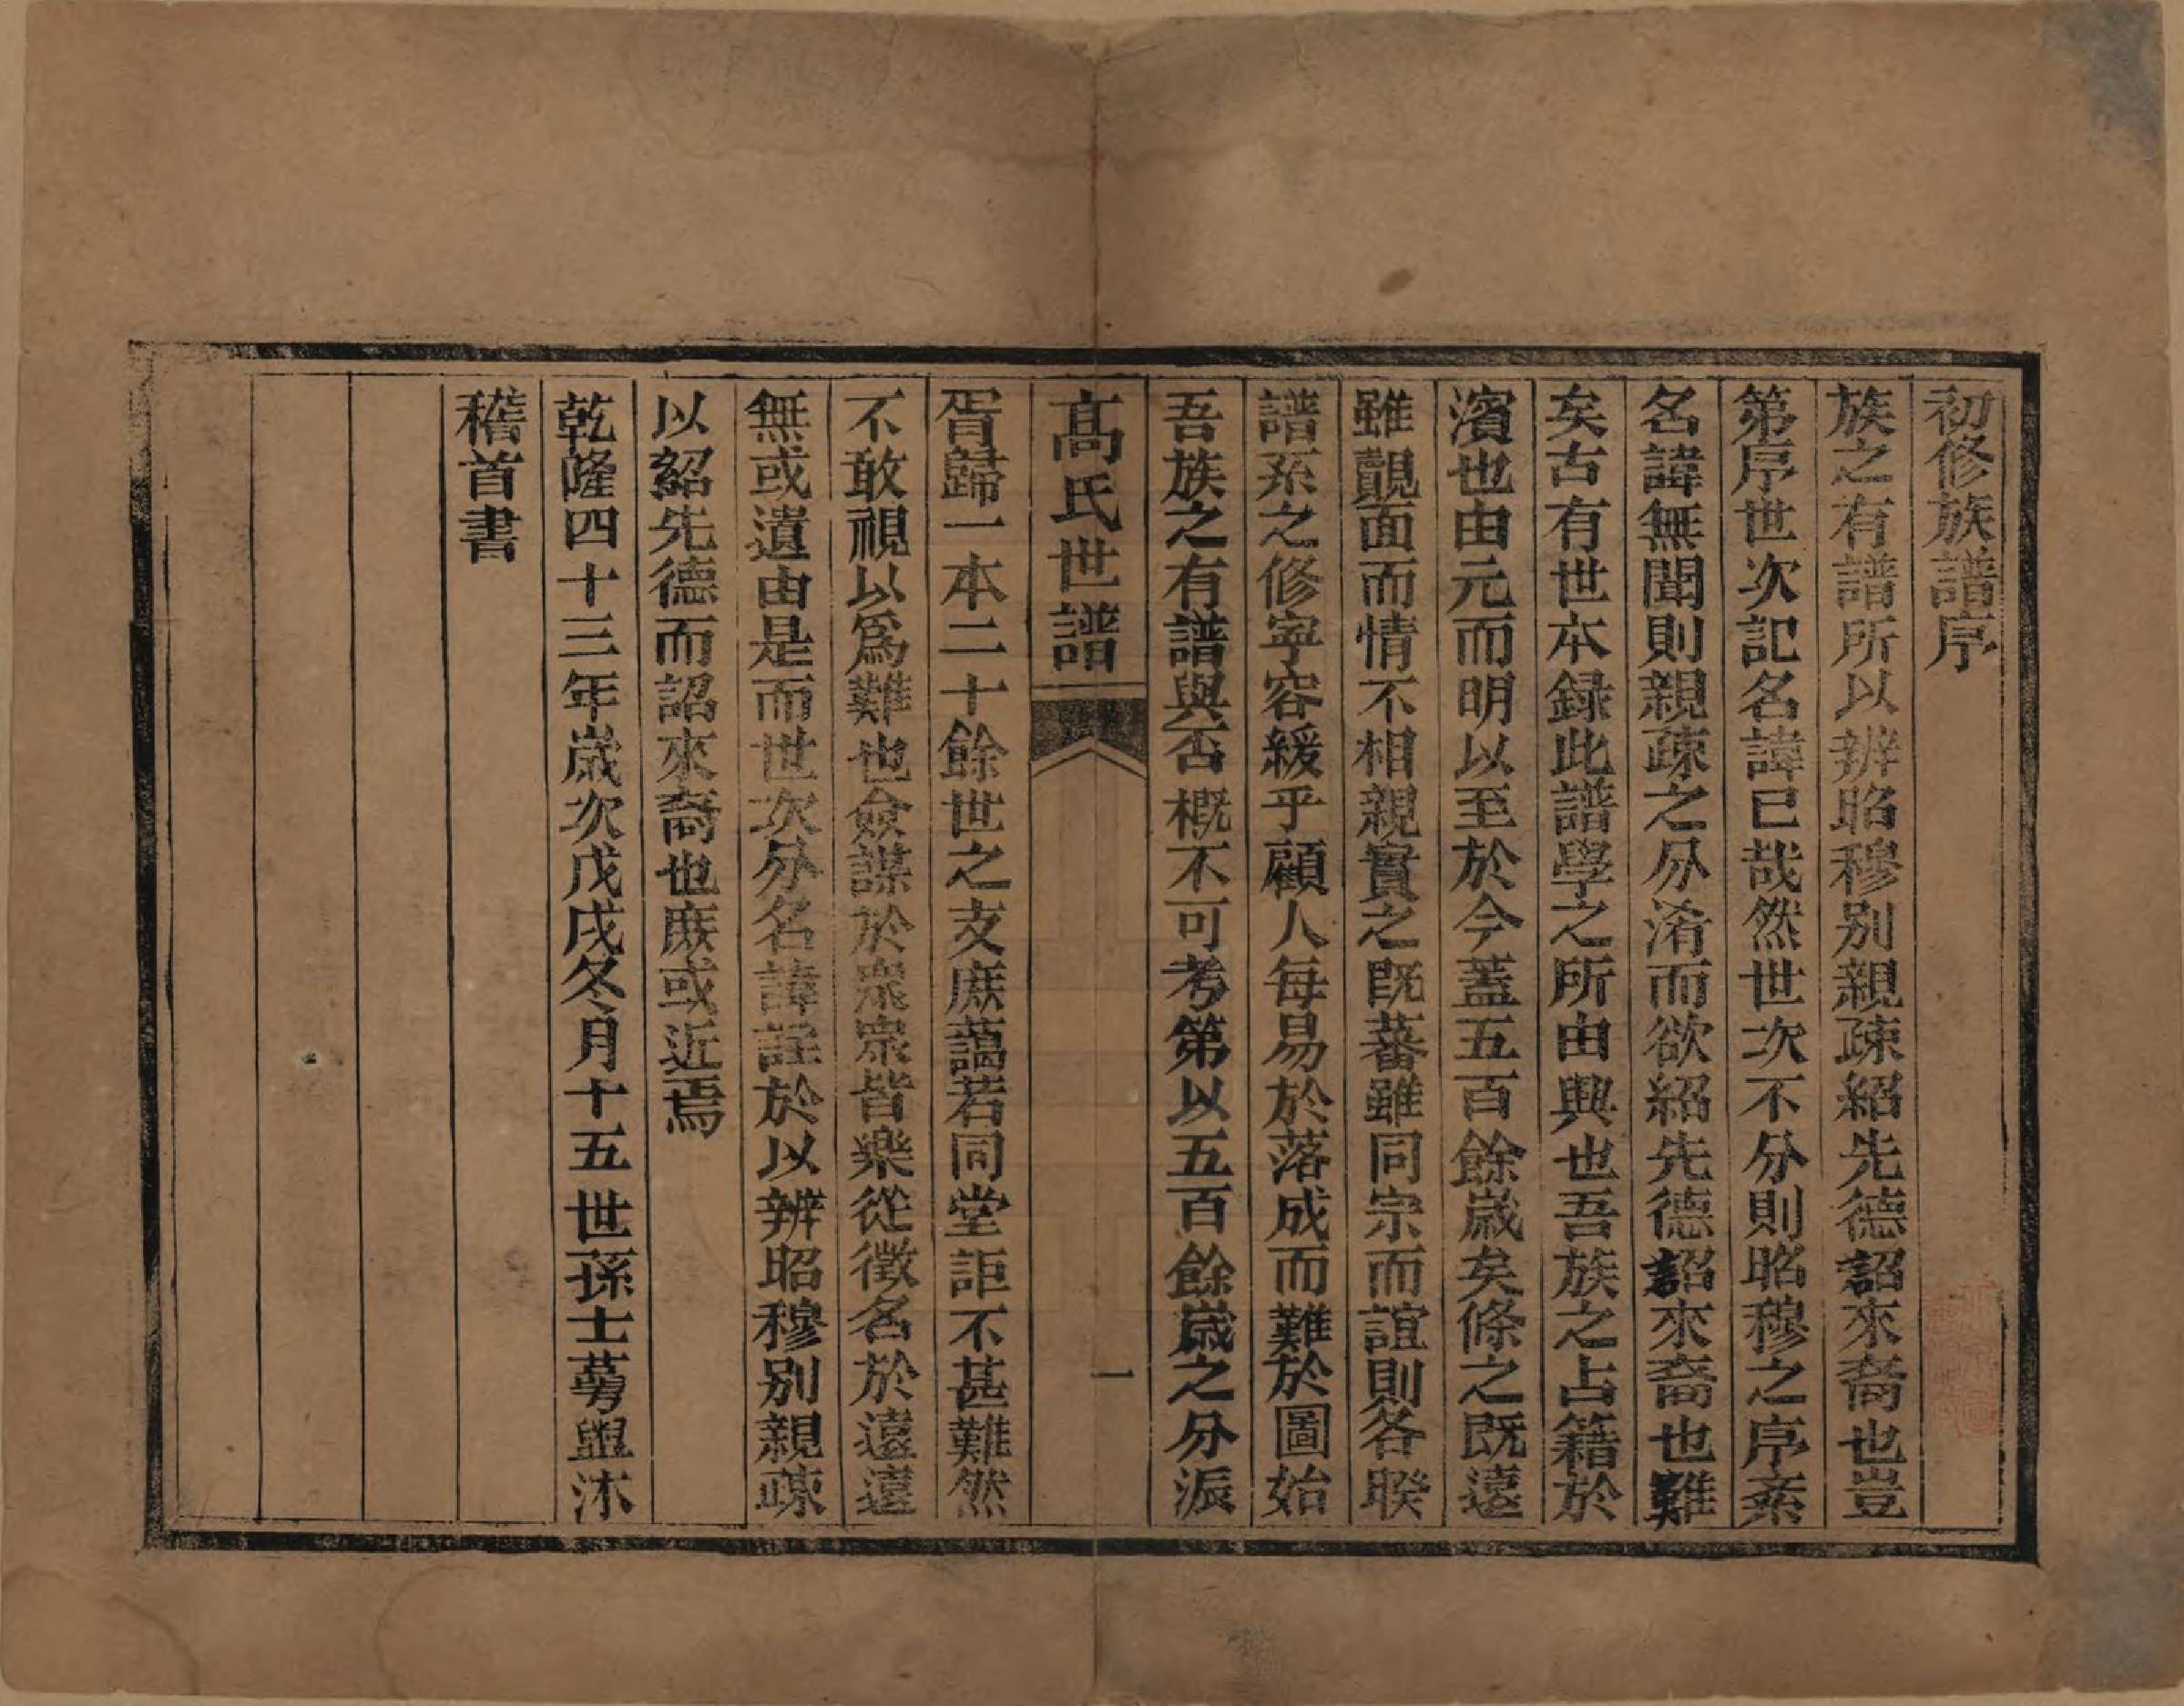 初修族譜序
族之有譜所以辨昭穆別親疎紹先德詔來裔也豈
第序世次記名諱已哉然世次不分則昭穆之序紊
名諱無聞則親疎之分淆而欲紹先德詔來裔也難
矣古有世本録此譜學之所由興也吾族之占籍於
濱也由元而明以至於今蓋五百餘歲矣條之既遠
雖覿面而情不相親實之既蕃雖同宗而誼則各睽
譜系之修寧容緩乎顧人每易於落成而難於圖始
吾族之有譜與否概不可考第以五百餘歲之分派
高氏世譜
一
胥歸一本二十餘世之支庶藹若同堂詎不甚難然
不敢視以爲難也僉謀於衆衆皆樂從徵名於遠遠
無或遺由是而世次分名諱詳於以辨昭穆別親疎
以紹先德而詔來裔也庶或近焉
乾隆四十三年歲次戊戌冬月十五世孫士蒡盥沐
稽首書